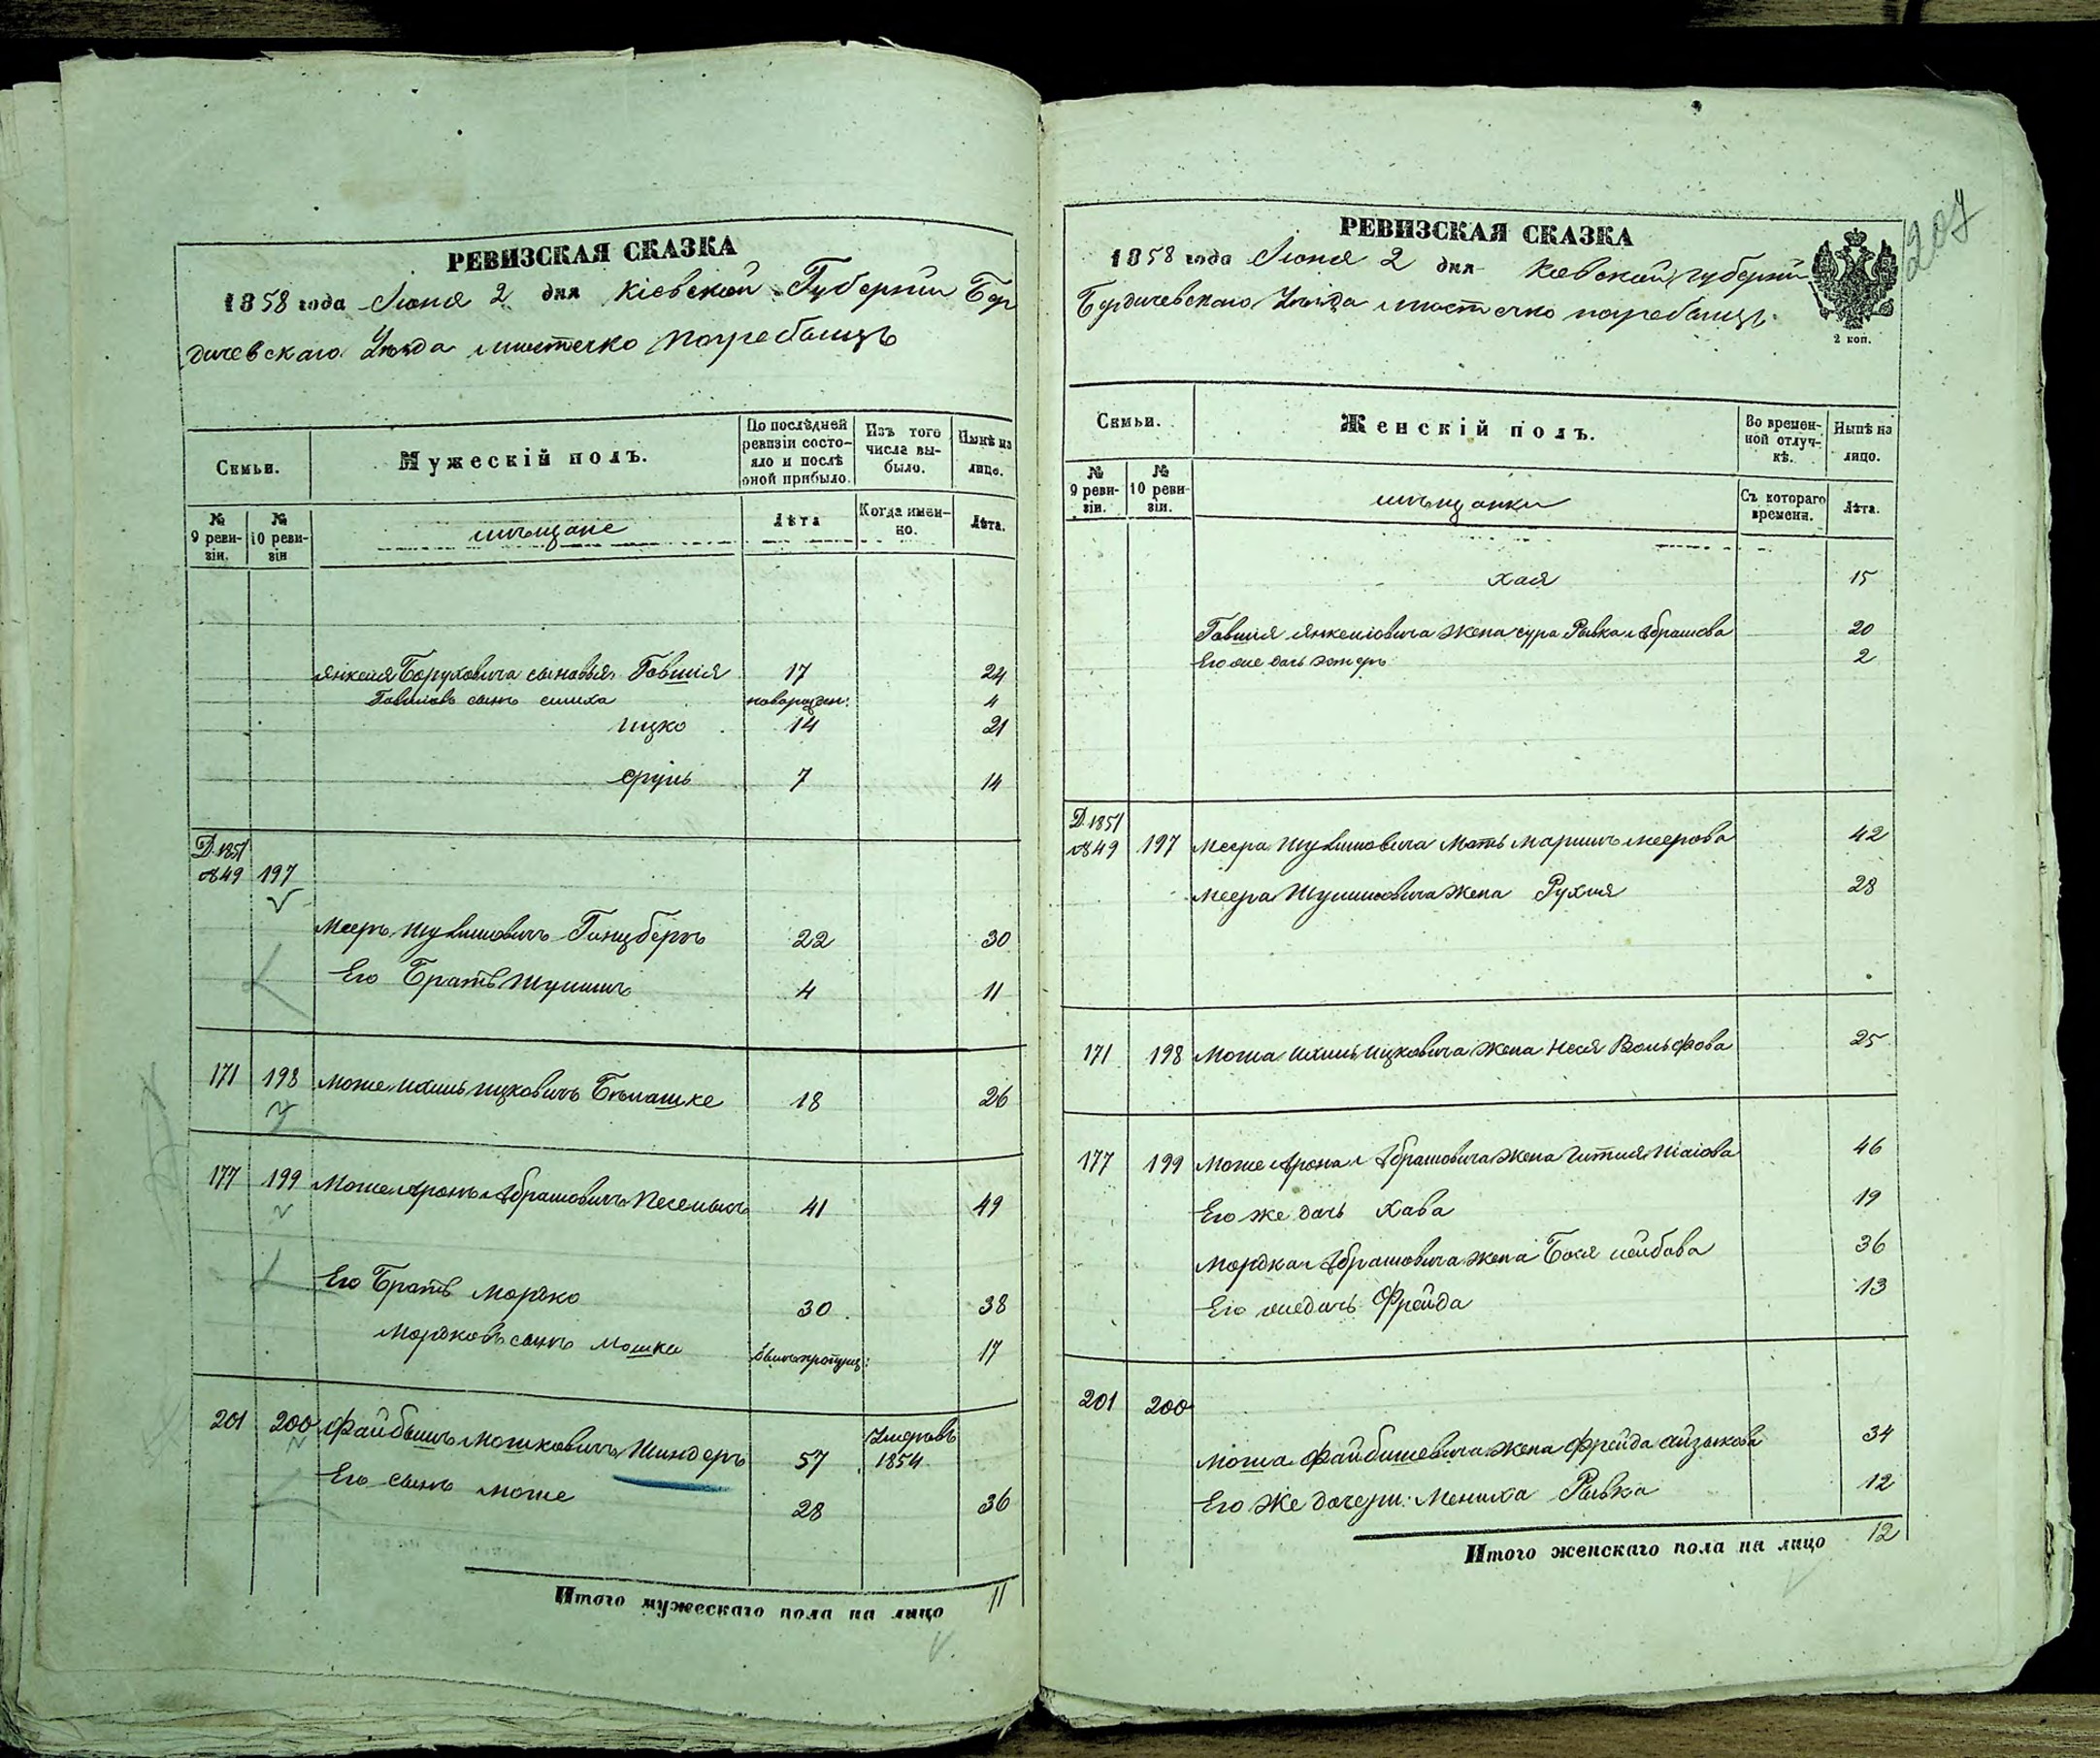 РЕВИЗСКАЯ СКАЗКА
1858 года Іюня 2 дня Кіевской Губерніи Бер
дичевскаго Уѣзда мѣстечко Погребищъ
Семьи.
Мужескій полъ.
По послѣдней ревизіи состояло и послѣ оной прибыло.
Изъ того числа выбыло.
Нынѣ на лицо.
№ 9 ревизіи.
№ 10 ревизіи
мѣщане
Лѣта
Когда именно.
Лѣта.
Янкеля Боруховича сыновья Говшія 17 24
сынъ симха новорожден: 4
Ицко 14 21
Сруль 7 14
Д. 1851
№ 49 197
Мееръ Шулимовичъ Гинцбергъ 22 30
Его Братъ Шулимъ 4 11
171 198 Моше Ихиль Ицковичъ 18 26
177 199 Моше Аронъ Абрамовичъ 41 49
Его Братъ Мордко 30 38
Мордковъ сынъ Мошка былъ пропущ: 17
201 200 Файбишъ Мошковичъ Шиндеръ 57 Умеръ въ 1854
Его сынъ Моше 28 36
Итого мужескаго пола на лицо 11
РЕВИЗСКАЯ СКАЗКА
1858 года Іюня 2 дня Кіевской губерніи
Бердичевскаго Уѣзда мѣстечко погребищъ
2 коп.
207
Семьи.
Женскій полъ.
Во временной отлучкѣ.
Нынѣ на лицо.
№ 9 ревизіи.
№ 10 ревизіи.
мѣщанки
Съ котораго времени.
Лѣта.
Хая 15
Говшія Янкелiовича жена сура Рывка Абрамова 20
Его же дочь Эстеръ 2
Д. 1851
№ 49 197 Меера Шулимовича Мать Маримъ Меерова 42
Меера Шулимовича жена Рухля 28
171 198 Моша Ихиль Ицковича жена Неся Вольфова 25
177 199 Моше Арона Абрамовича жена Гитля 46
Его же дочь Хава 19
Мордка Абрамовича жена Бася лейбова 36
Его же дочь Фрейда 13
201 200
Моша Файбишевича жена Фрейда Айзикова 34
Его же дочери: Мениха Рывка 12
Итого женскаго пола на лицо 12